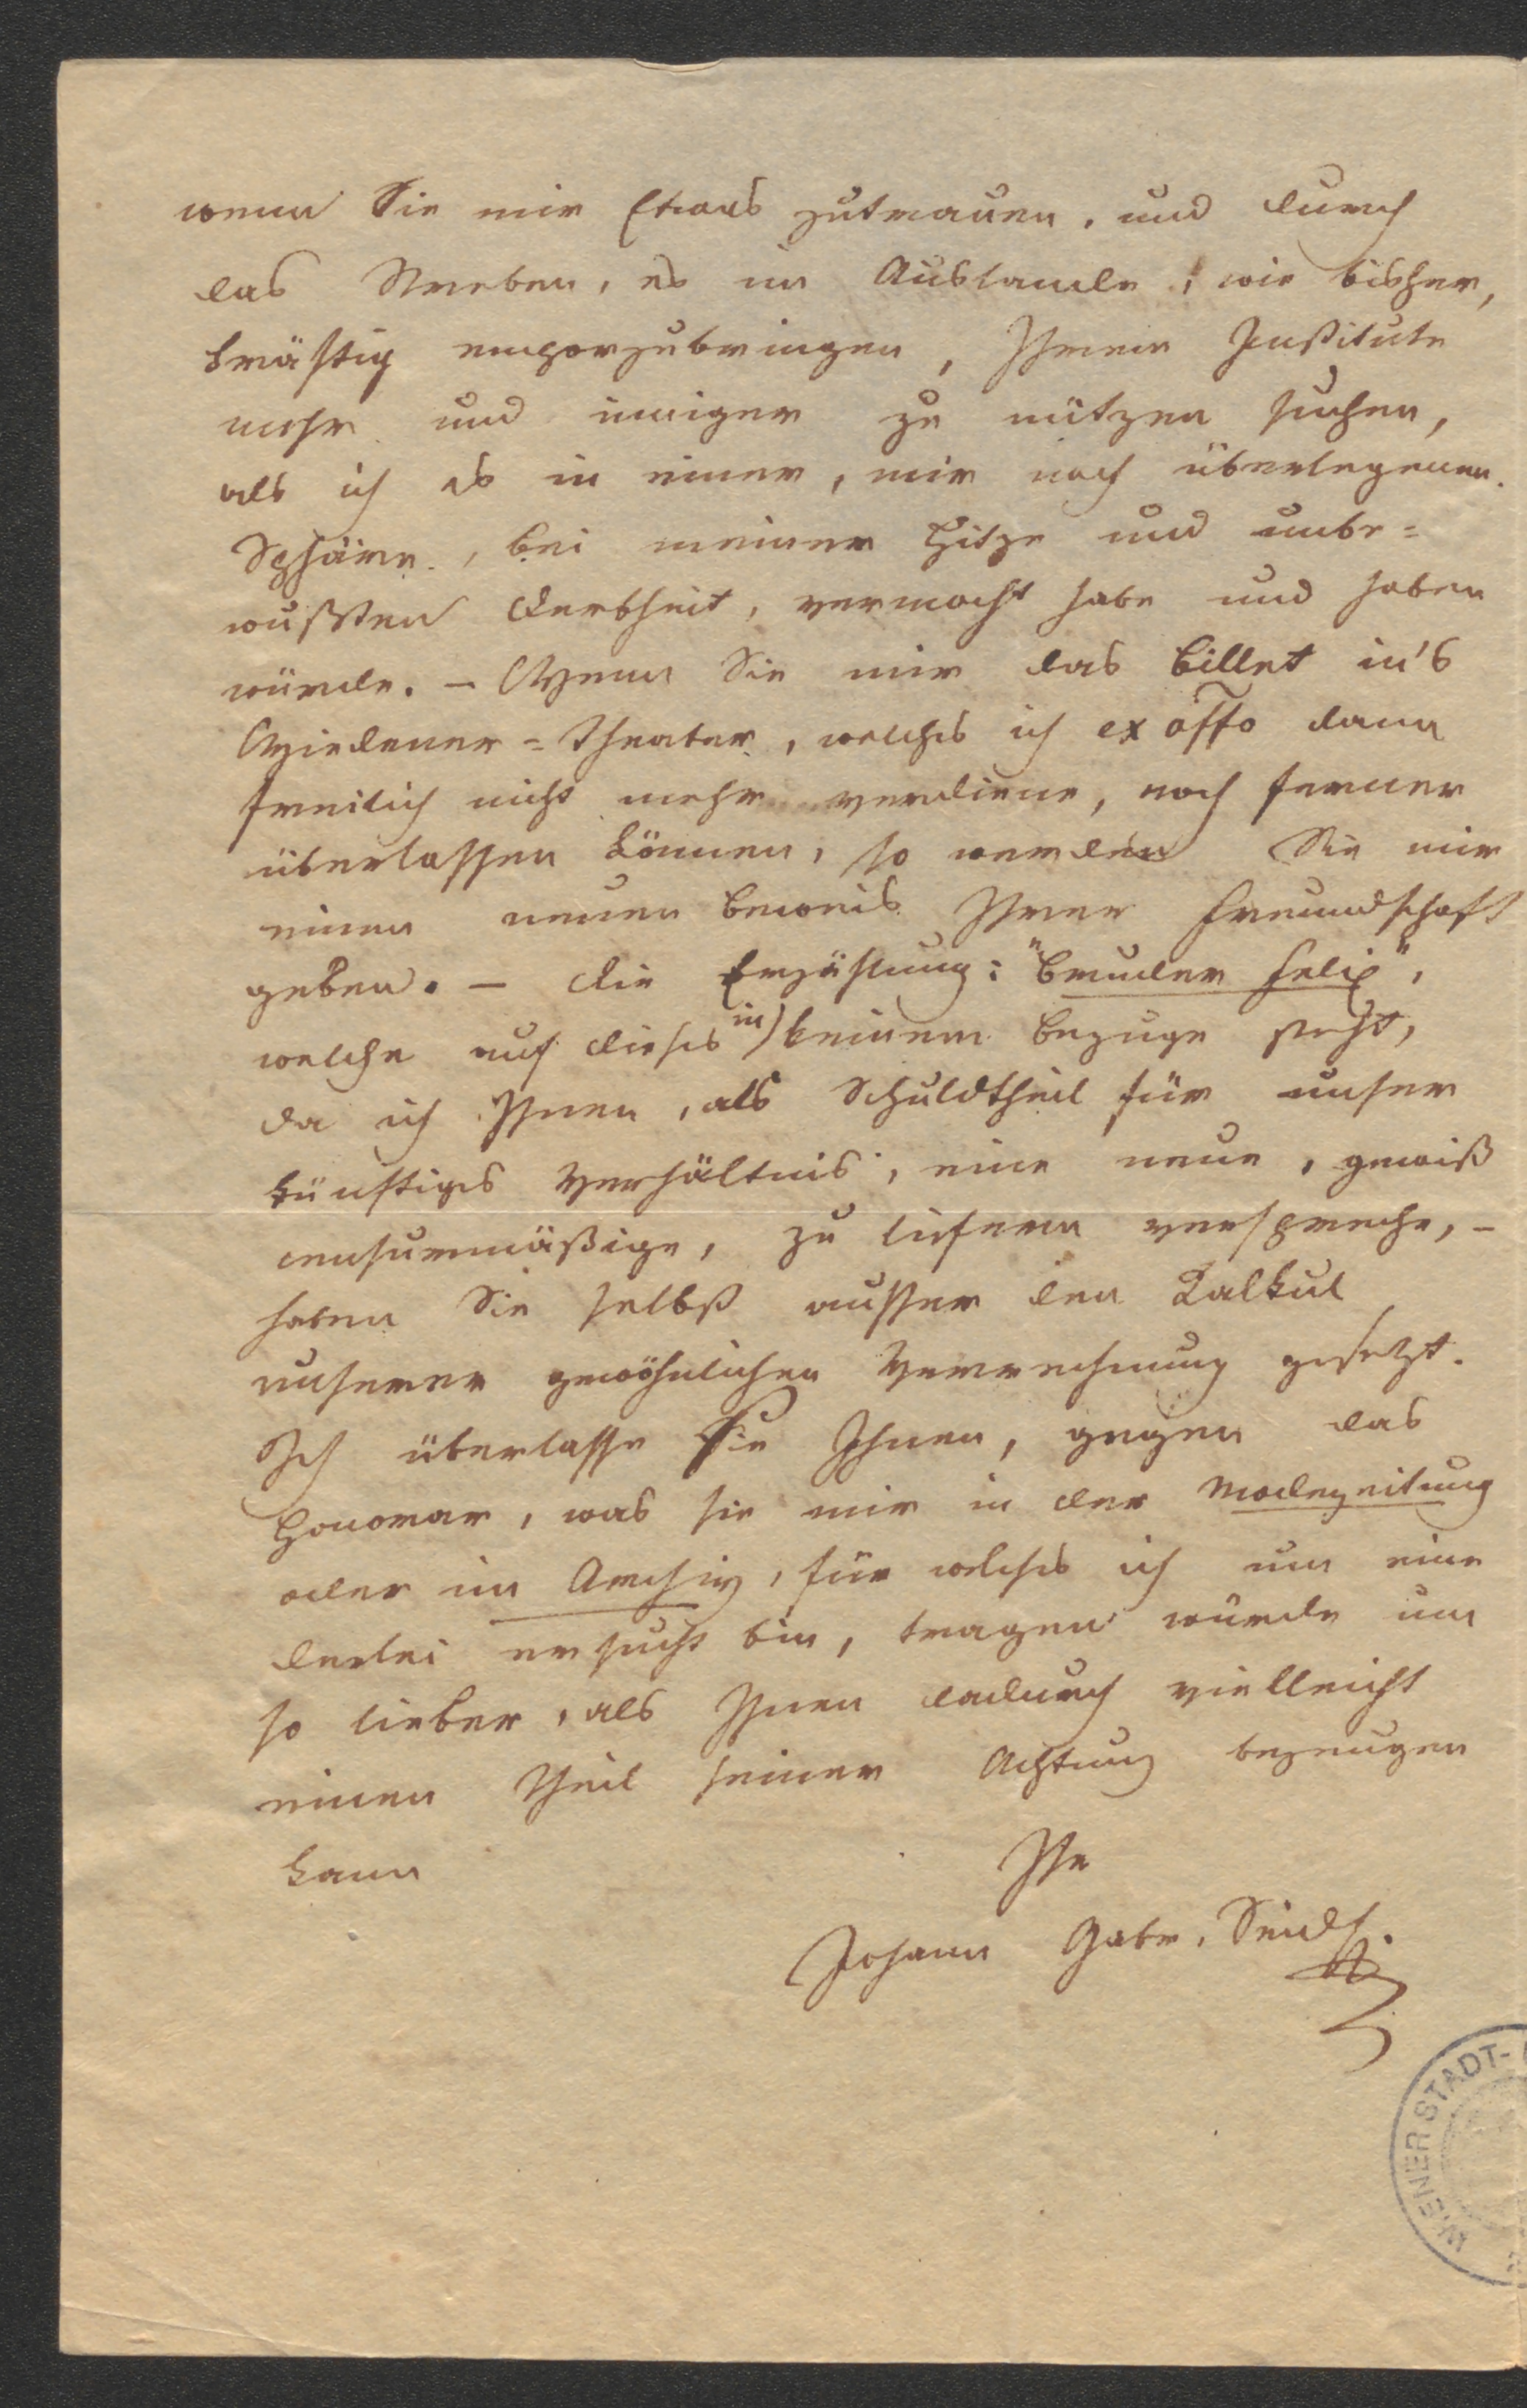 wenn Sie mir Etwas zutrauen, und durch
das Streben, es im Auslande, wie bisher,
kräftig emporzubringen, Ihrem Institute
mehr und inniger zu nützen suchen,
als ich es in einer, mir noch überlegenen
Sphäre, bei meiner Hitze und unbe=
wußten Derbheit, vermocht habe und haben
würde. – Wenn Sie mir das Billet in's
Wiedener=Theater, welches ich ex offo dann
freilich nicht mehr verdiene, noch ferner
überlassen können, so werden Sie mir
einen neuen Beweis Ihrer Freundschaft
geben. – Die Erzählung: "Bruder Felix",
welche auf dieses in keinem Bezuge steht,
da ich Ihnen, als Schuldtheil für unser
künftiges Verhältnis, eine neue, gewiß
censurmäßige, zu liefern verspreche, –
haben Sie selbst ausser den Kalkul
unserer gewöhnlichen Verrechnung gesetzt.
Ich überlasse Sie Ihnen, gegen das
Honorar, was sie mir in der Modezeitung
oder im Archiv, für welches ich um eine
derlei ersucht bin, tragen würde um
so lieber, als Ihnen dadurch vielleicht
einen Theil seiner Achtung bezeugen
kann
Ihr
Johann Gabr. Seidl.
WIENER STADT-